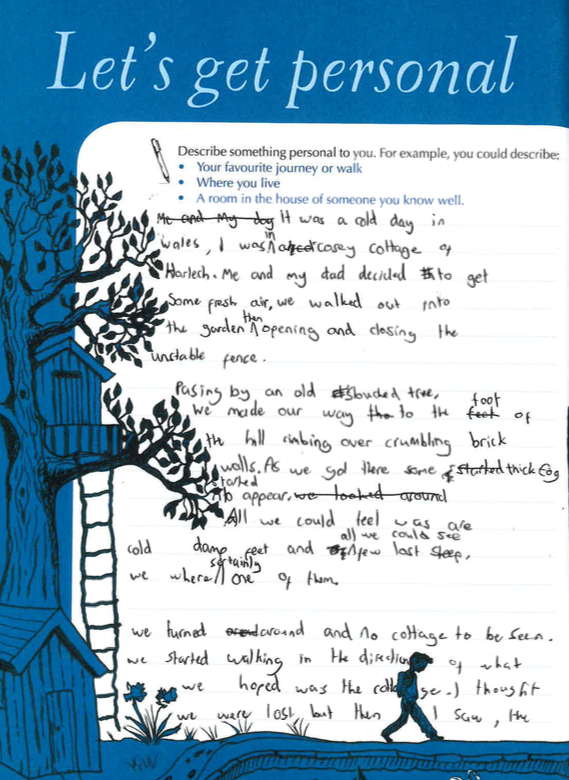 Let's get personal
Describe something personal to you. For example, you could describe:
• Your favourite journey or walk
• Where you live
• A room in the house of someone you know well.
Me and My dog It was a cold day in
wales, I was in a cosey cottage of
Harlech. Me and my dad decided to get
Some fresh air, we walked out into
the garden then opening and closing the
unstable fence.
Pasing by an old tree,
we made our way to the foot of
the hill cimbing over crumbling brick
walls. As we got there some thick fog
started to appear. we looked around
All we could feel was are
cold damp feet and all we could see few lost sheep,
we where certainly one of them.
we turned around and no cottage to be seen.
we started walking in the direction of what
we hoped was the cottage. I thought
we were lost but then I saw, the